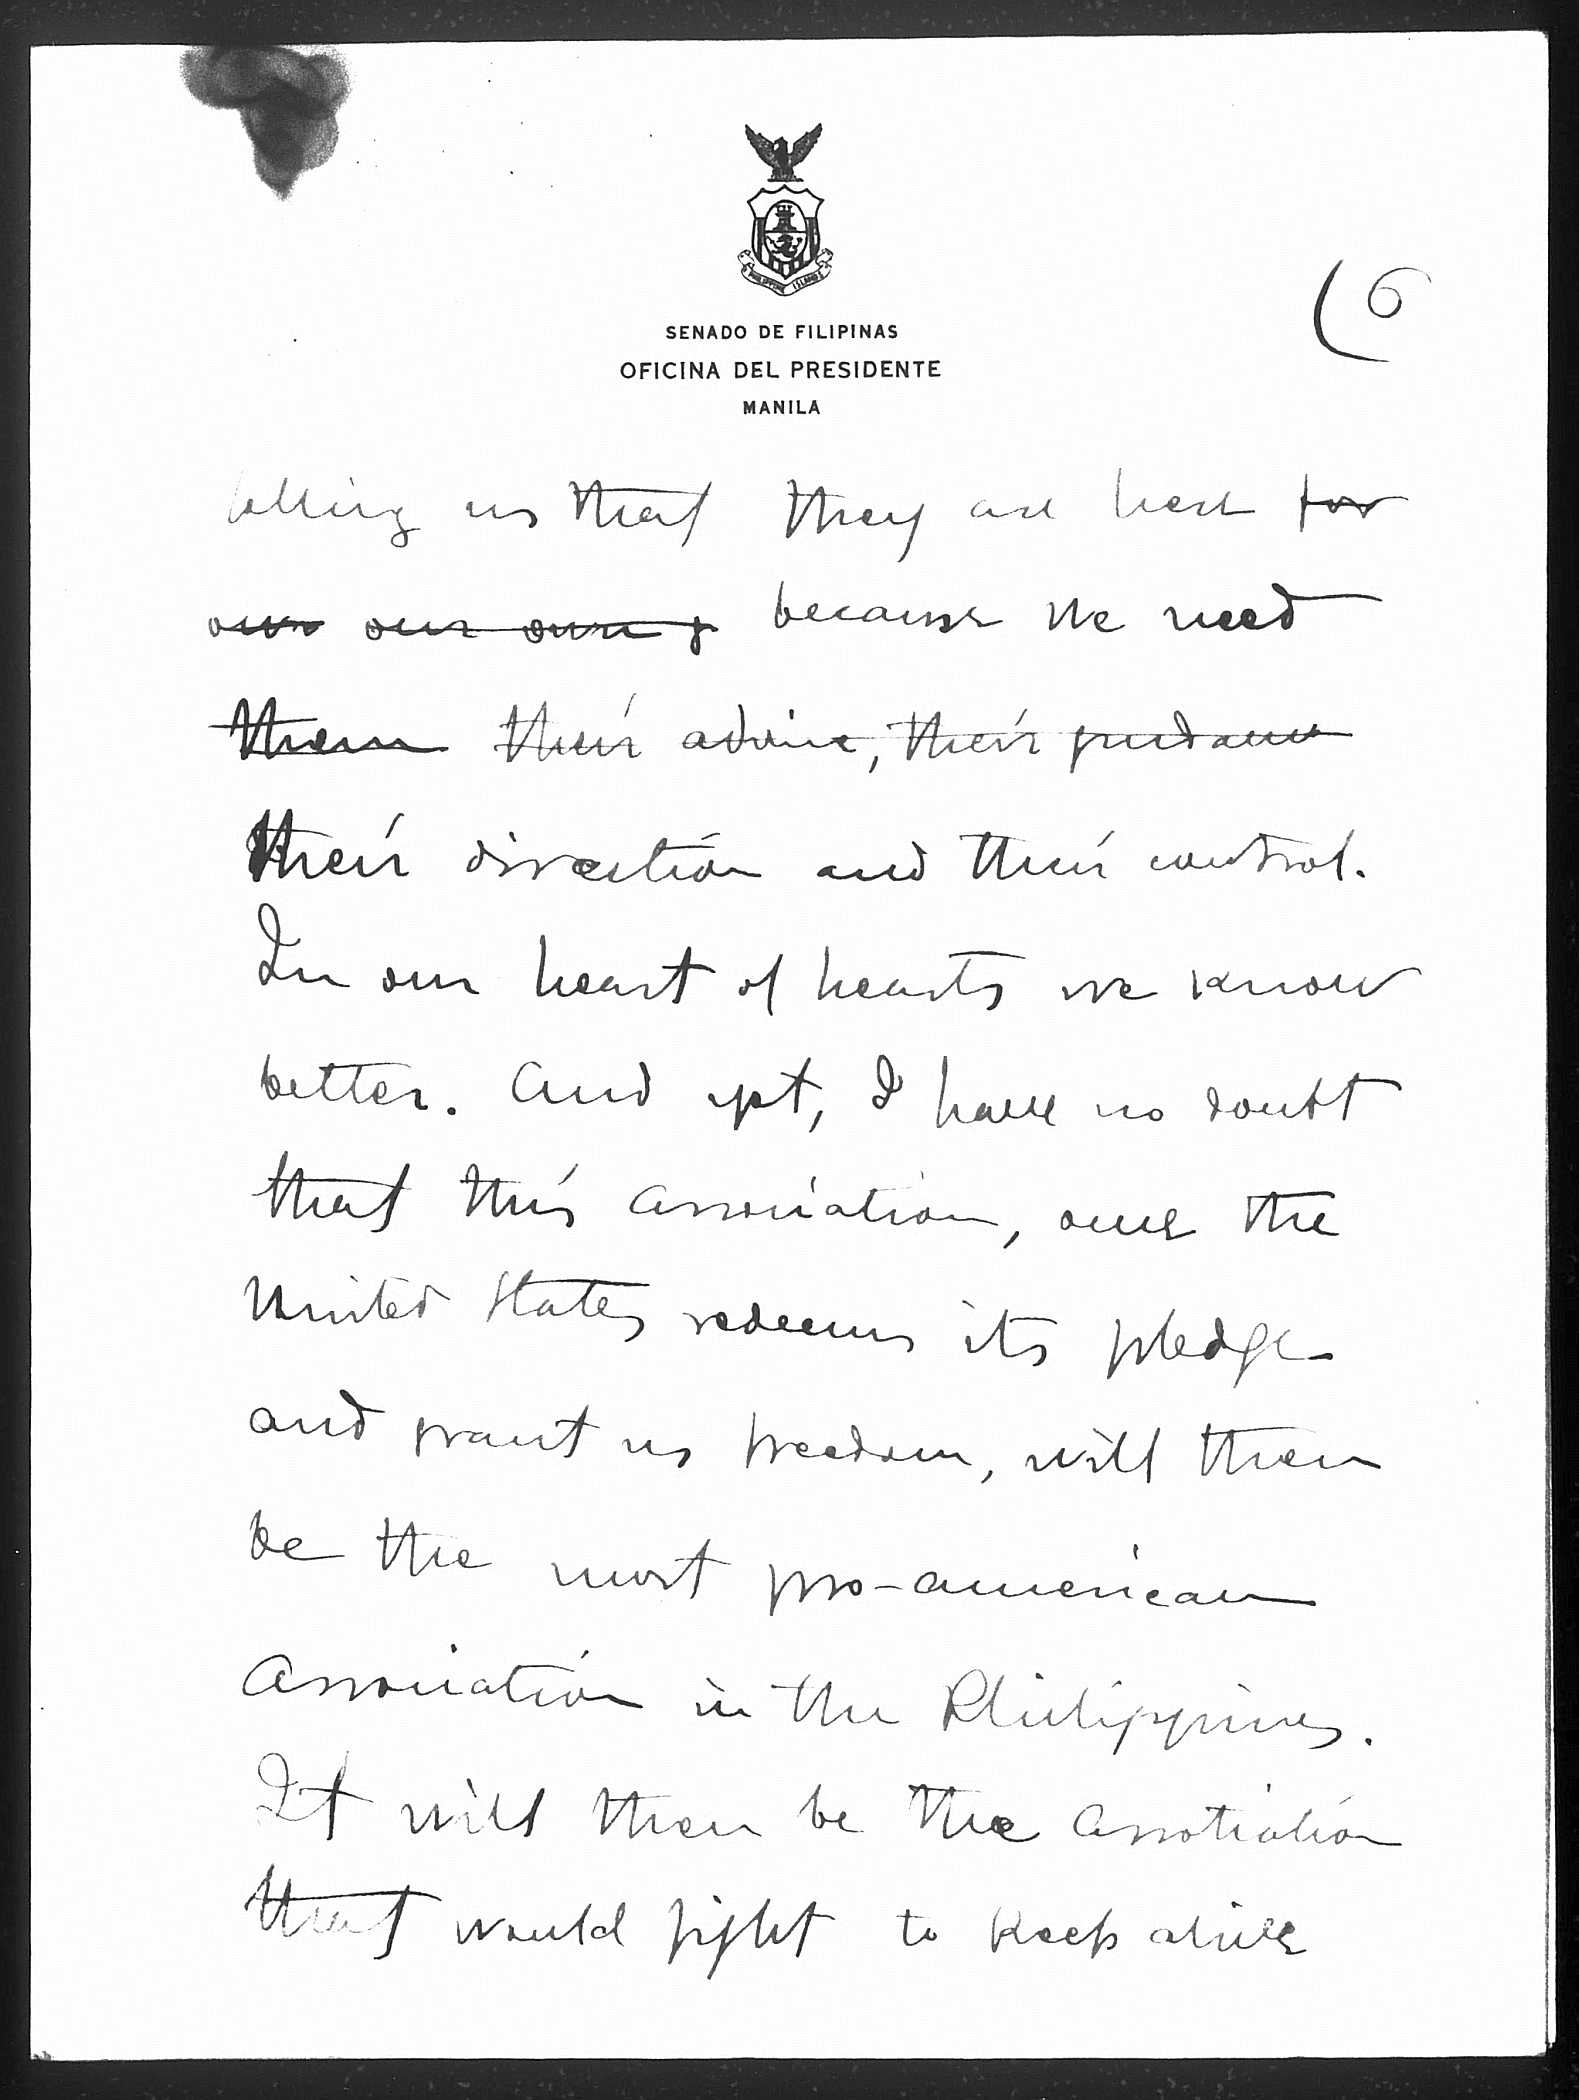 PHILIPPINE ISLANDS
SENADO DE FILIPINAS
OFICINA DEL PRESIDENTE
MANILA
6
telling us that they are here for
our our own g because we need
them their advice, their guidance
their direction and their control.
In our heart of hearts we know
better. And yet, I have no doubt
that this association, once the
United States redeems its pledge
and grant us freedom, will then
be the most pro-american
association in the Philippines.
It will then be the association
that would fight to keep alive